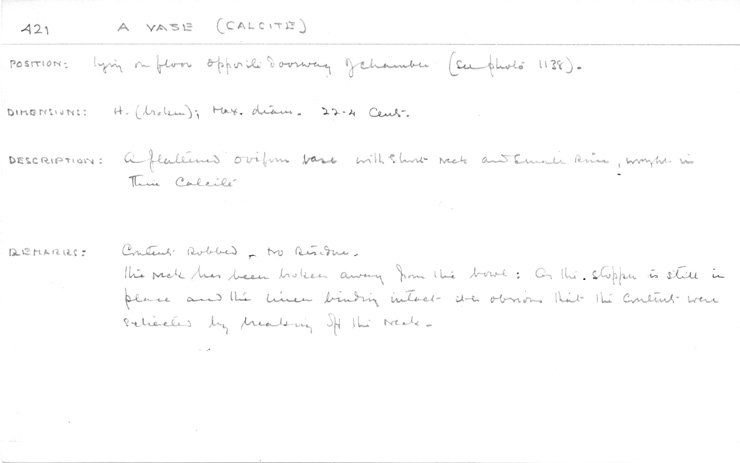 421 A VASE (CALCITE)
POSITION: lying on floor opposite doorway of chamber (See photo 1138).
DIMENSIONS: H. (broken); Max. diam. 22.4 Cent.
DESCRIPTION: A flattened oviform vase with short neck and small rim, wrought in
thin Calcite
REMARKS: Contents robbed. No Residue.
The neck has been broken away from the bowl: as the stopper is still in
place and the linen binding intact it is obvious that the contents were
extracted by breaking off the neck.